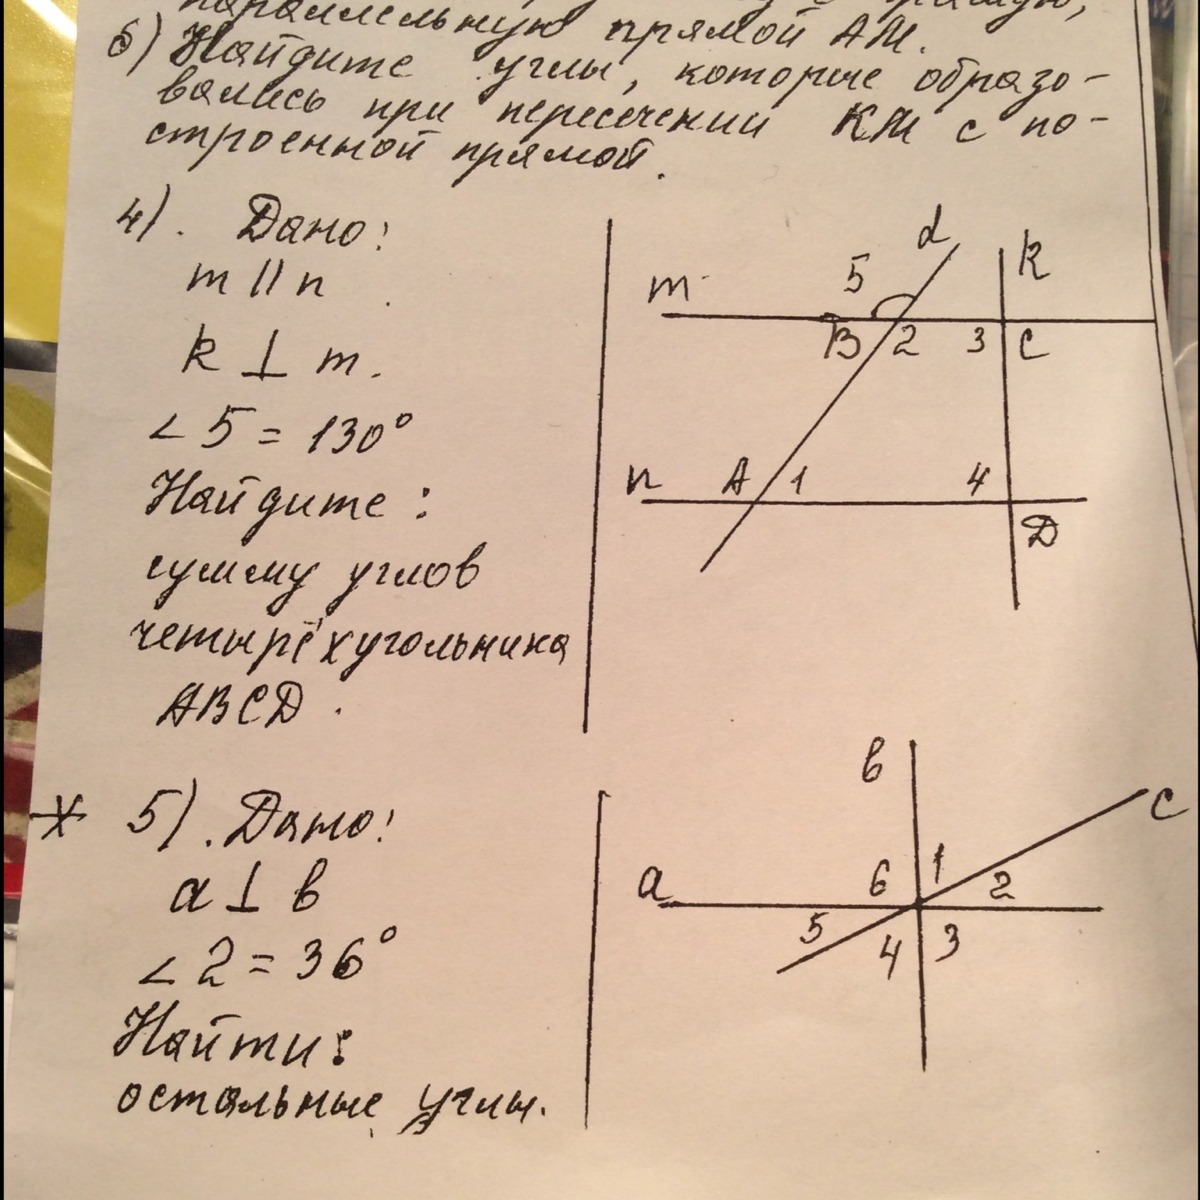 параллельную прямой АМ.
б) Найдите углы, которые образо-
вались при пересечении КМ с по-
строенной прямой.
4). Дано:
m || n
k ⊥ m.
∠5 = 130°
Найдите:
сумму углов
четырёхугольника
ABCD.
d
k
5
m
B 2 3 C
n A 1 4
D
* 5). Дано:
a ⊥ b
∠2 = 36°
Найти:
остальные углы.
b
c
a 6 1 2
5 4 3